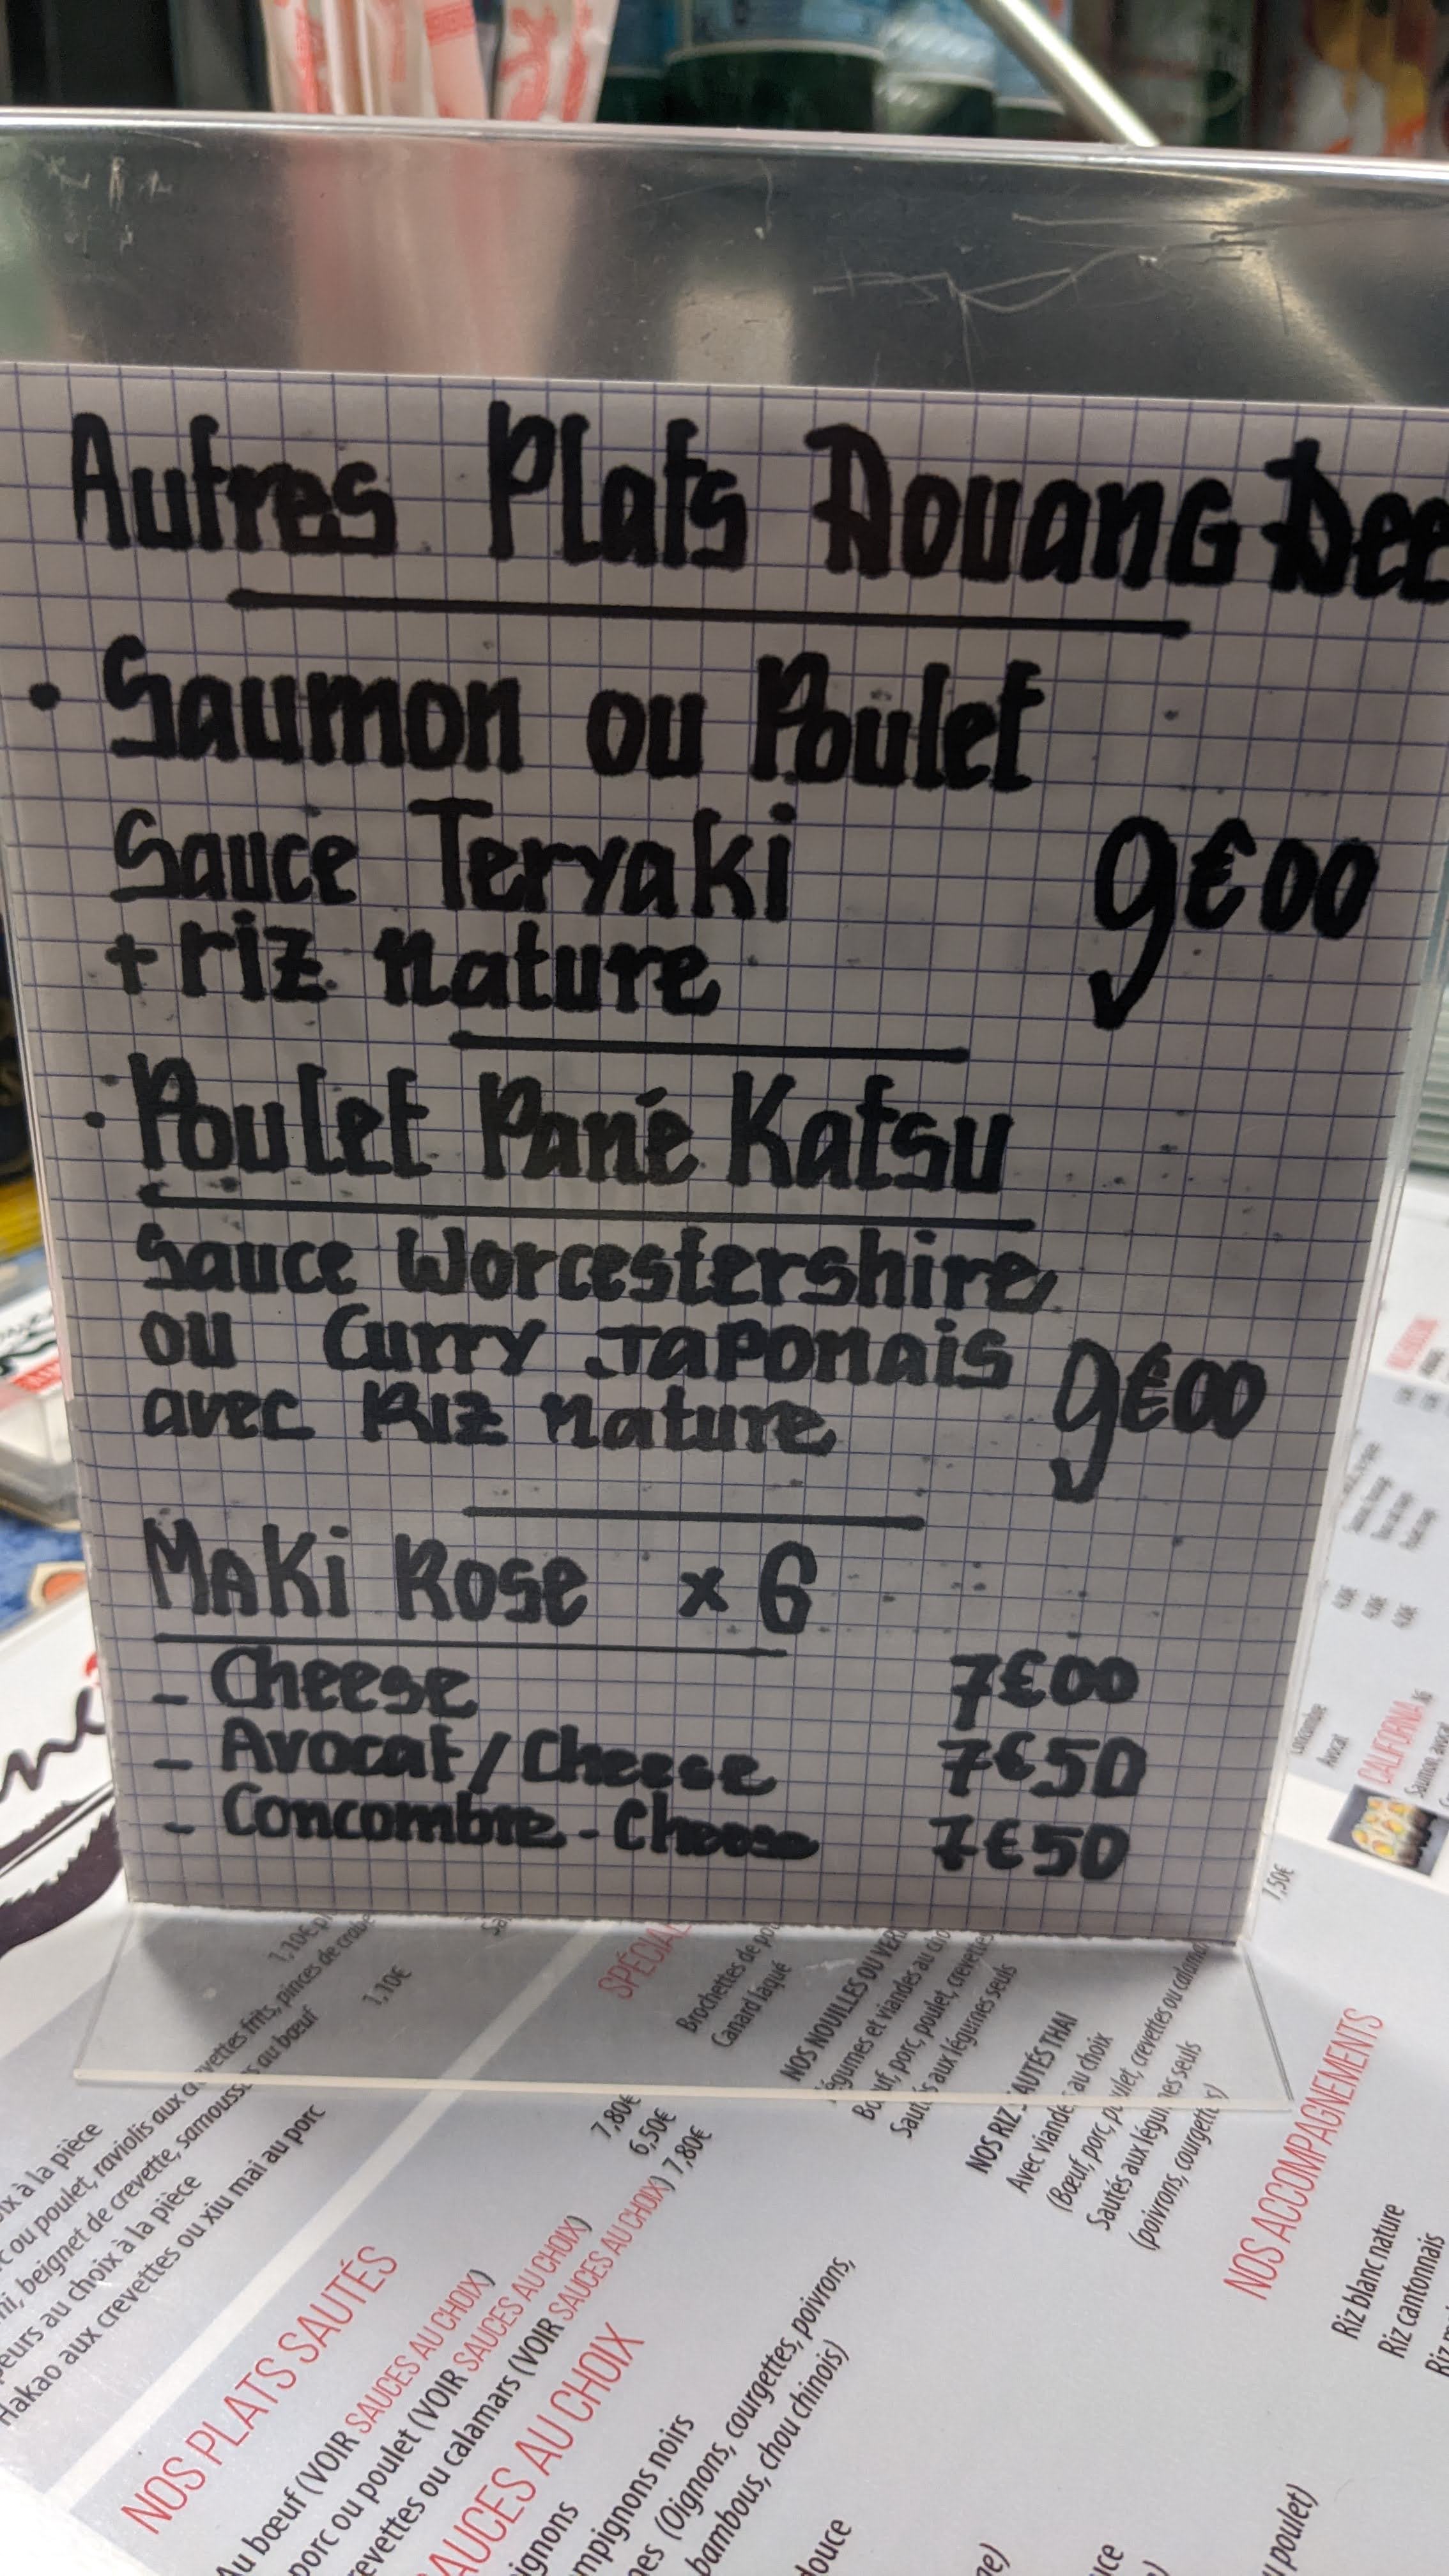 Autres Plats Douang Dee
• Saumon ou Poulet
Sauce Teryaki 9€00
+ riz nature
• Poulet Pané Katsu
Sauce Worcestershire
ou Curry Japonais 9€00
avec Riz nature
Maki Rose x 6
- Cheese 7€00
- Avocat / Cheese 7€50
- Concombre - Cheese 7€50
1,10€
1,10€
SPÉCIAL
Brochettes de
Canard laqué
NOS NOUILLES OU VER
légumes et viandes au
porc, poulet, crevettes
aux légumes seuls
NOS RIZ SAUTÉS THAI
Avec viande au choix
(Bœuf, porc, poulet, crevettes ou
Sautés aux légumes seuls
(poivrons, courgettes)
NOS ACCOMPAGNEMENTS
Riz blanc nature
Riz cantonnais
Riz
à la pièce
ou poulet, raviolis aux crevettes frits, pinces de crabe
beignet de crevette, samoussas au bœuf
au choix à la pièce
Hakao aux crevettes ou xiu mai au porc
NOS PLATS SAUTÉS
Au bœuf (VOIR SAUCES AU CHOIX) 7,80€
porc ou poulet (VOIR SAUCES AU CHOIX) 6,50€
crevettes ou calamars (VOIR SAUCES AU CHOIX) 7,80€
SAUCES AU CHOIX
champignons noirs
(Oignons, courgettes, poivrons,
bambous, chou chinois)
douce
poulet)
Concombre
Avocat
CALIFORNIA
Saumon avocat
7,50€
4,00€
4,00€
4,00€